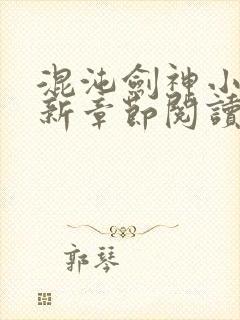 混沌劍神小
新章節閱讀
郭琴